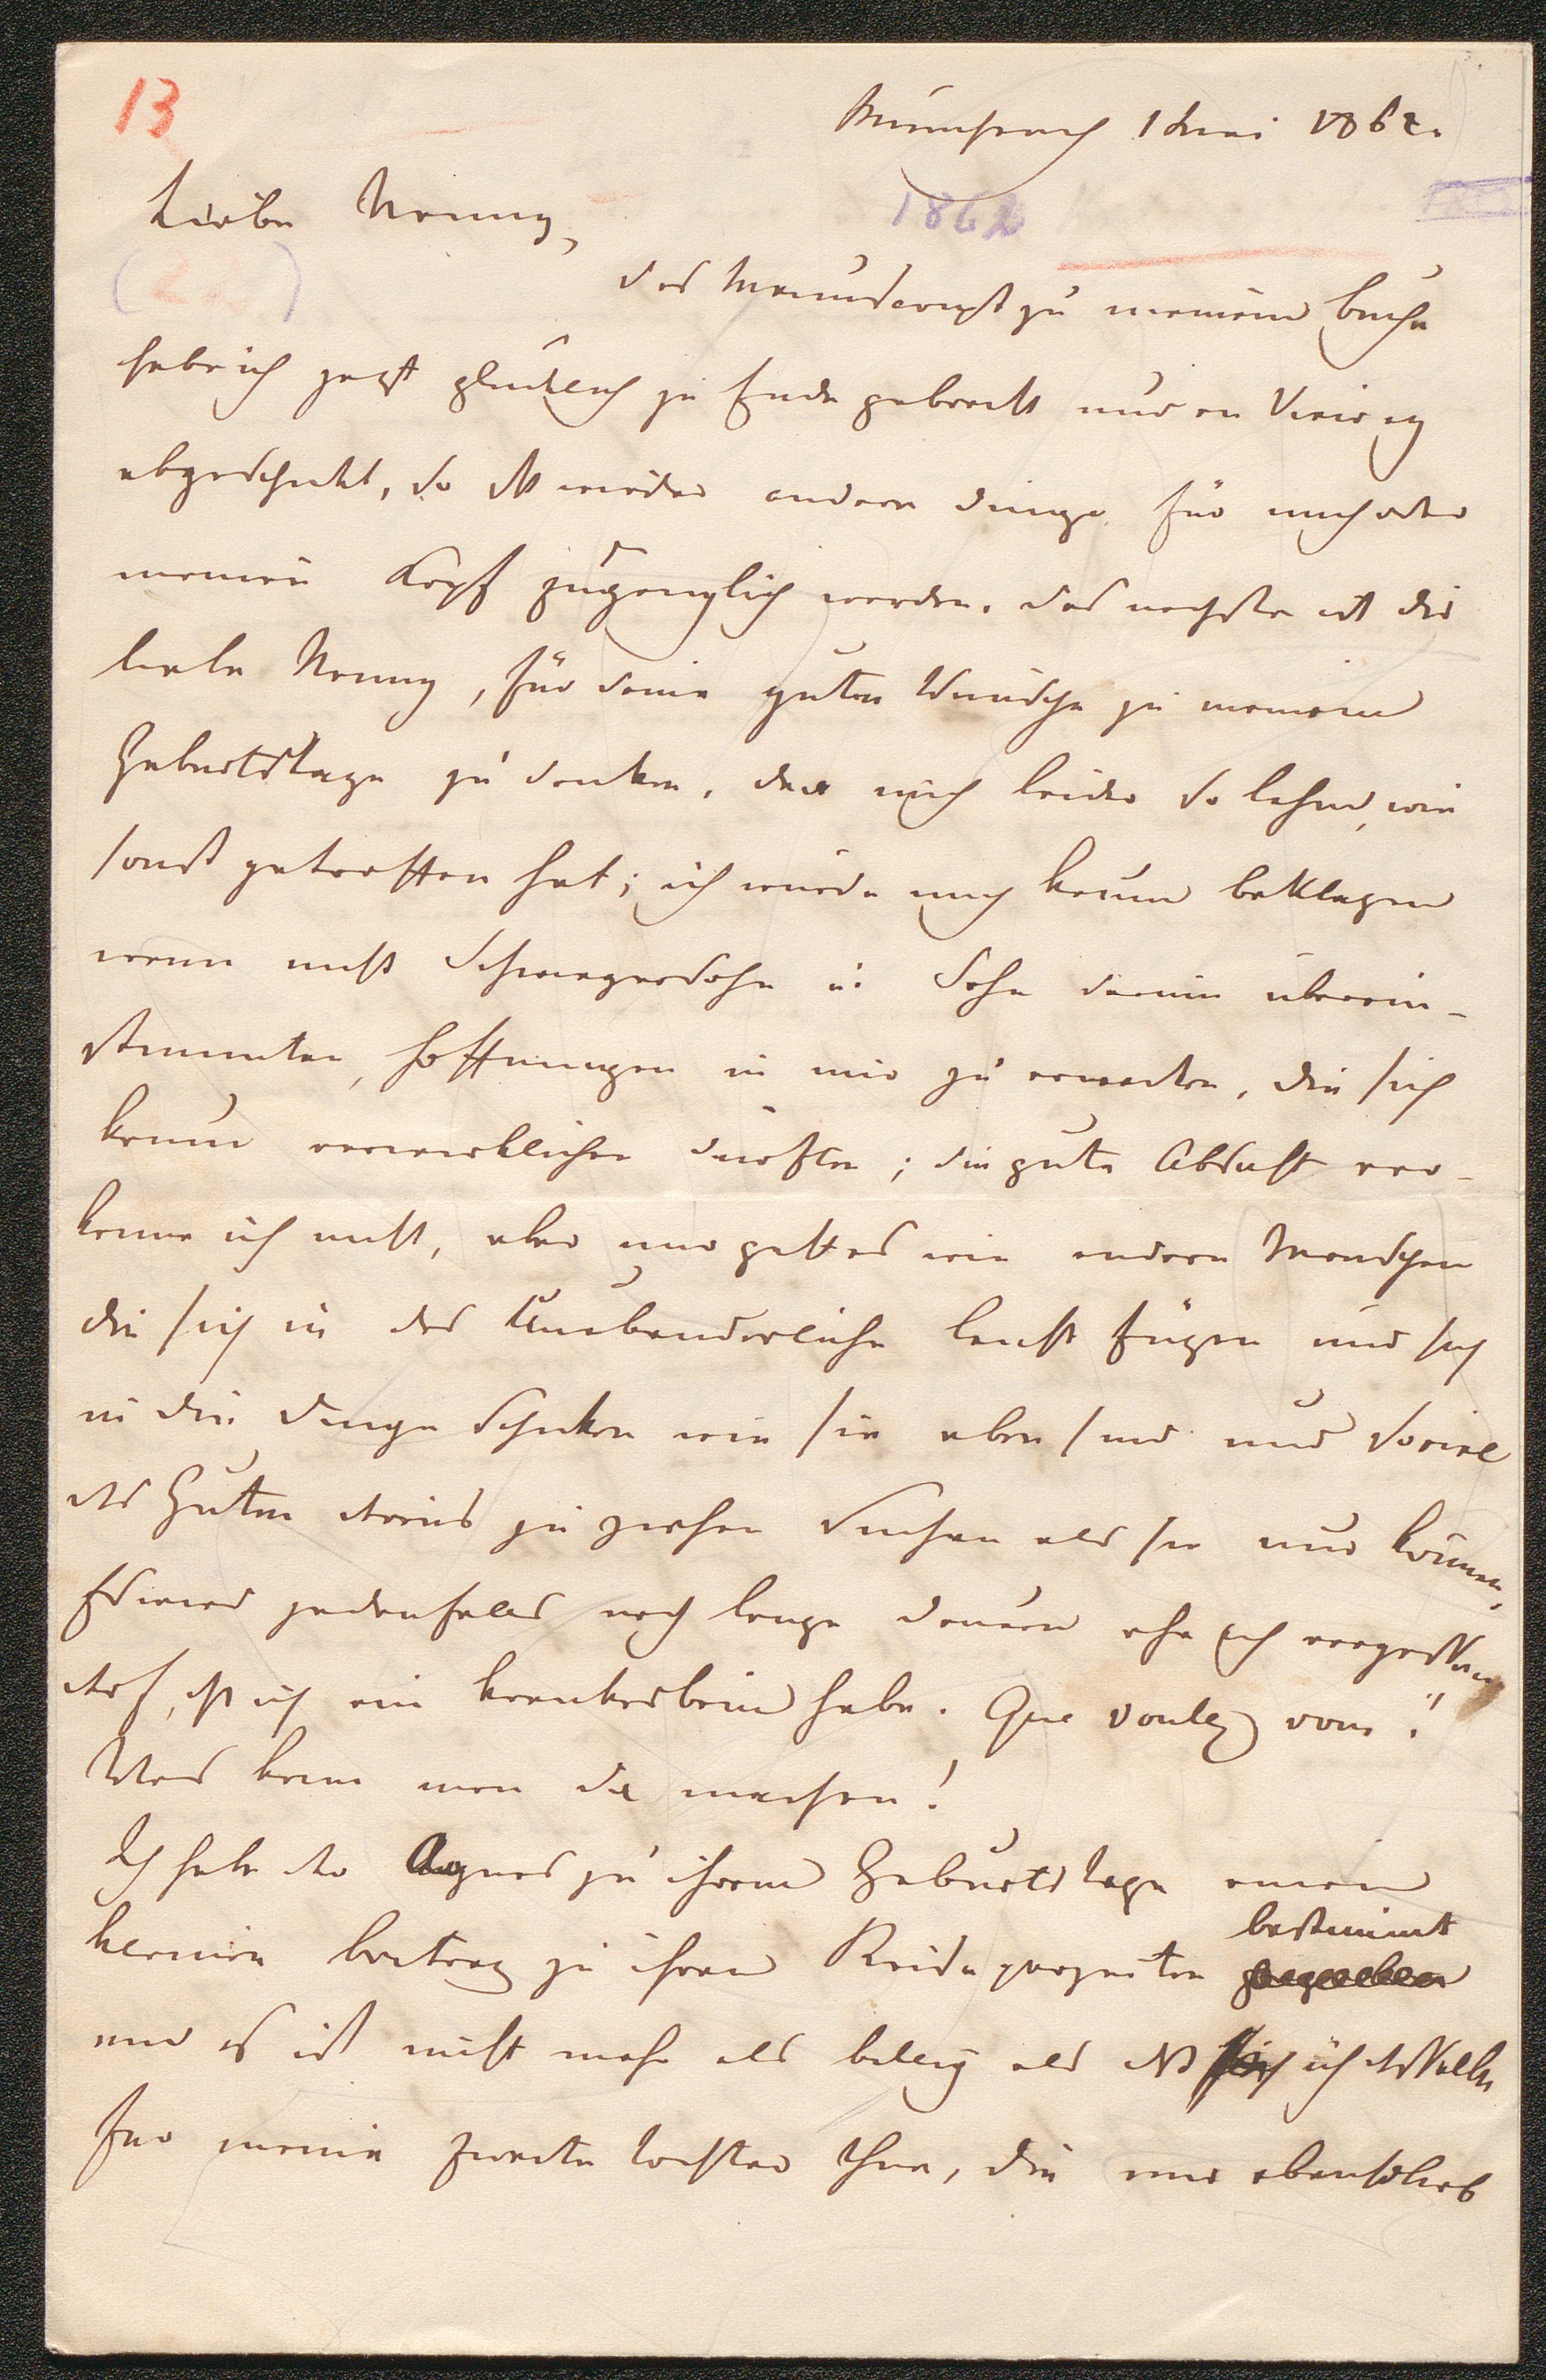 13
München 1 Juni 1862.
1862
Liebe Nanny,
(22)
das Manuscript zu meinem Buche
habe ich jetzt glücklich zu Ende gebracht und an Vieweg
abgeschickt, so daß wieder andere Dinge für mich oder
meinen Kopf zugänglich werden. Das nächste ist dir
liebe Nanny, für deine guten Wünsche zu meinem
Geburtstage zu danken, der mich leider so lahm, wie
sonst getroffen hat; ich würde mich kaum beklagen
wenn nicht Schwiegersohn u. Sohn darin überein-
stimmten, Hoffnungen in mir zu erwecken, die sich
kaum verwirklichen dürften; die gute Absicht ver-
kenne ich nicht, aber mir geht es wie andern Menschen
die sich in das Unabänderliche leicht fügen und sich
in die Dinge schicken wie sie eben sind und soviel
des Guten daraus zu ziehen suchen als sie nur können,
Es wird jedenfalls noch lange dauern ehe ich vergessen
darf, daß ich ein krankes Bein habe. Que voulez vous!
Was kann man da machen!
Ich habe der Agnes zu ihrem Geburtstage einen
kleinen Beitrag zu ihren Reiseprojecten bestimmt
und es ist nicht mehr als billig als daß ich dasselbe
für meine zweite Tochter thue, die mir ebenso lieb